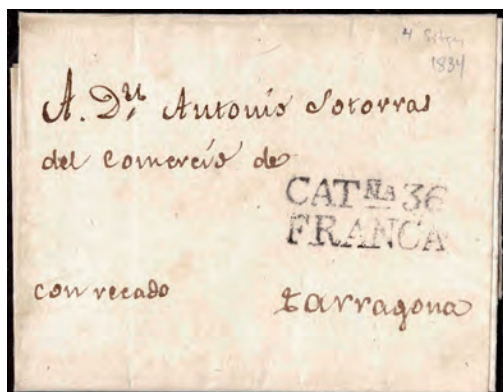 4 Sitges
1834
A. Dn. Antonio Sotorras
del Comercio de
CATÑA 36
FRANCA
con recado
Tarragona